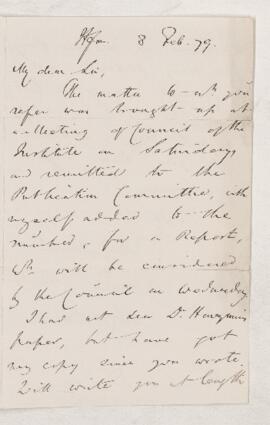 8 Feb. 79.
My dear Sir,
The matter to wh. you
refer was brought up at
a Meeting of Council of the
Institute on Saturday,
and remitted to the
Publication Committee, with
myself added to the
number, for a Report,
wh. will be considered
by the Council on Wednesday
I had not seen Dr. Honeyman's
paper, but have got
my copy since you wrote.
Will write you at length